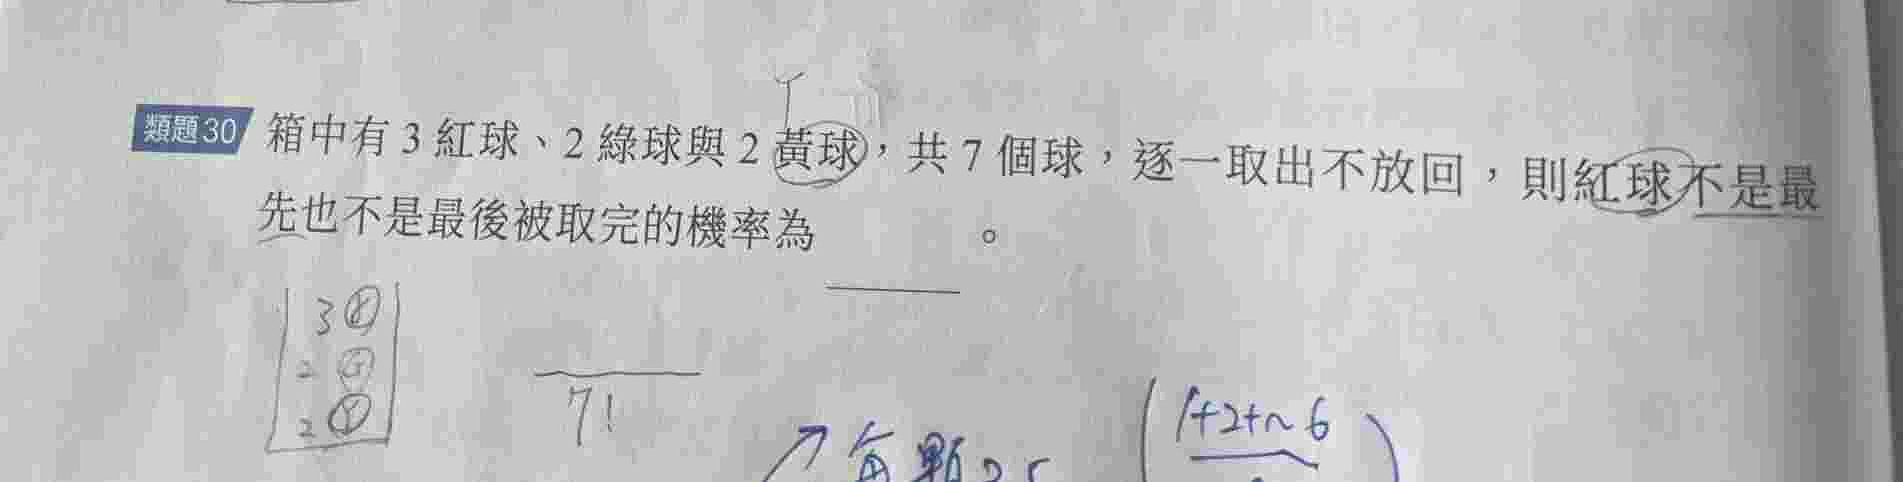 類題30 箱中有 3 紅球、2 綠球與 2 黃球，共 7 個球，逐一取出不放回，則紅球不是最
先也不是最後被取完的機率為______。
3 R
2 G
2 Y
7!
↗每顆
1+2+~6